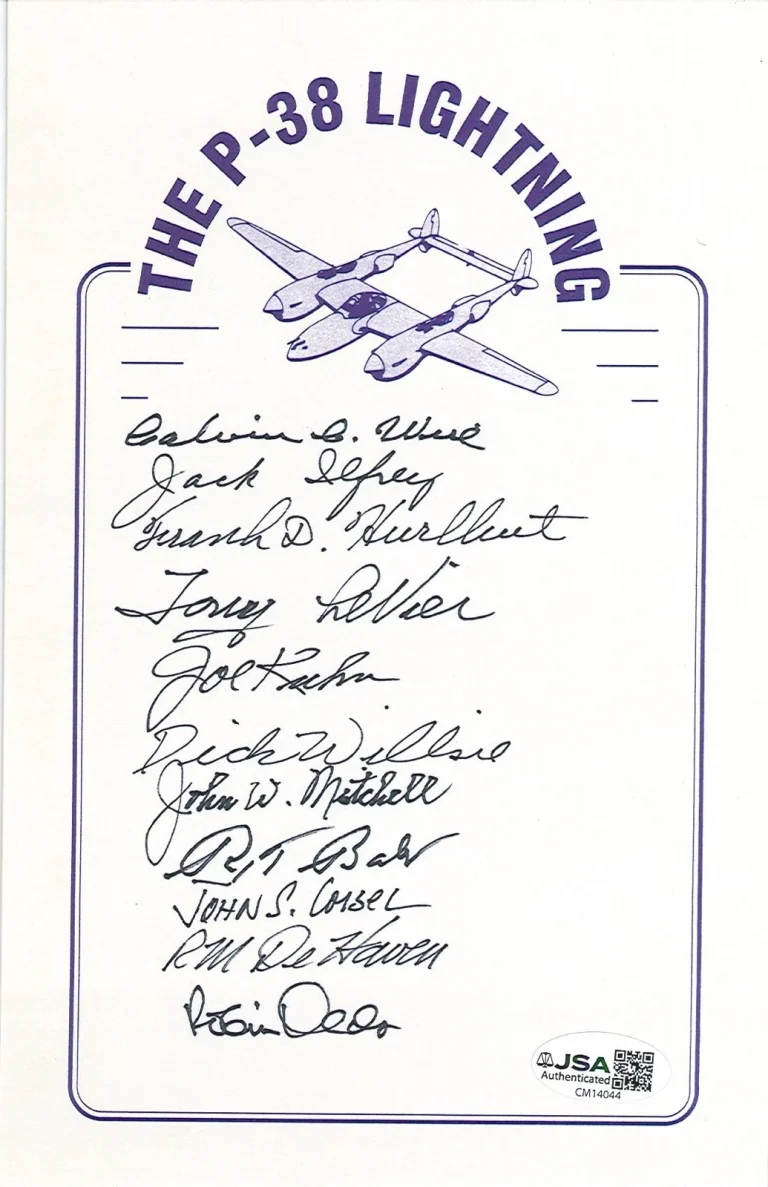 THE P-38 LIGHTNING
Calvin C. Wire
Jack Ilfrey
Frank D. Hurlbut
Tony LeVier
Joe Kuhn
Dick Willsie
John W. Mitchell
Rex T Barber
JOHN S.
RM DeHaven
Robin Olds
JSA
Authenticated
CM14044